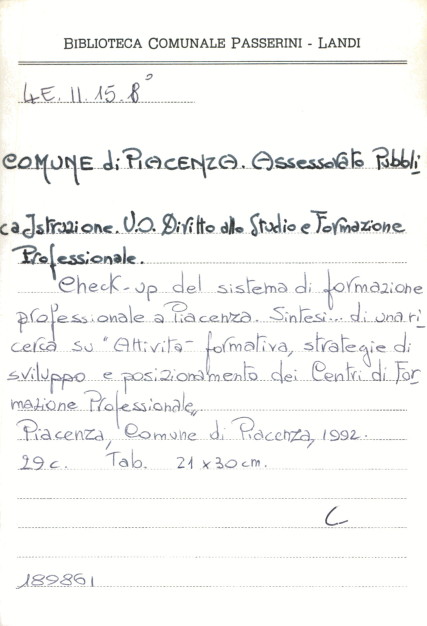 BIBLIOTECA COMUNALE PASSERINI - LANDI
4E. II. 15. 8°
COMUNE di PIACENZA. Assessorato Pubbli
ca Istruzione. U.O. Diritto allo Studio e Formazione
Professionale.
Check-up del sistema di formazione
professionale a Piacenza. Sintesi... di una ri
cerca su "Attività formativa, strategie di
sviluppo e posizionamento dei Centri di For
mazione Professionale,,
Piacenza, Comune di Piacenza, 1992.
29 c. Tab. 21 x 30 cm.
C
189861